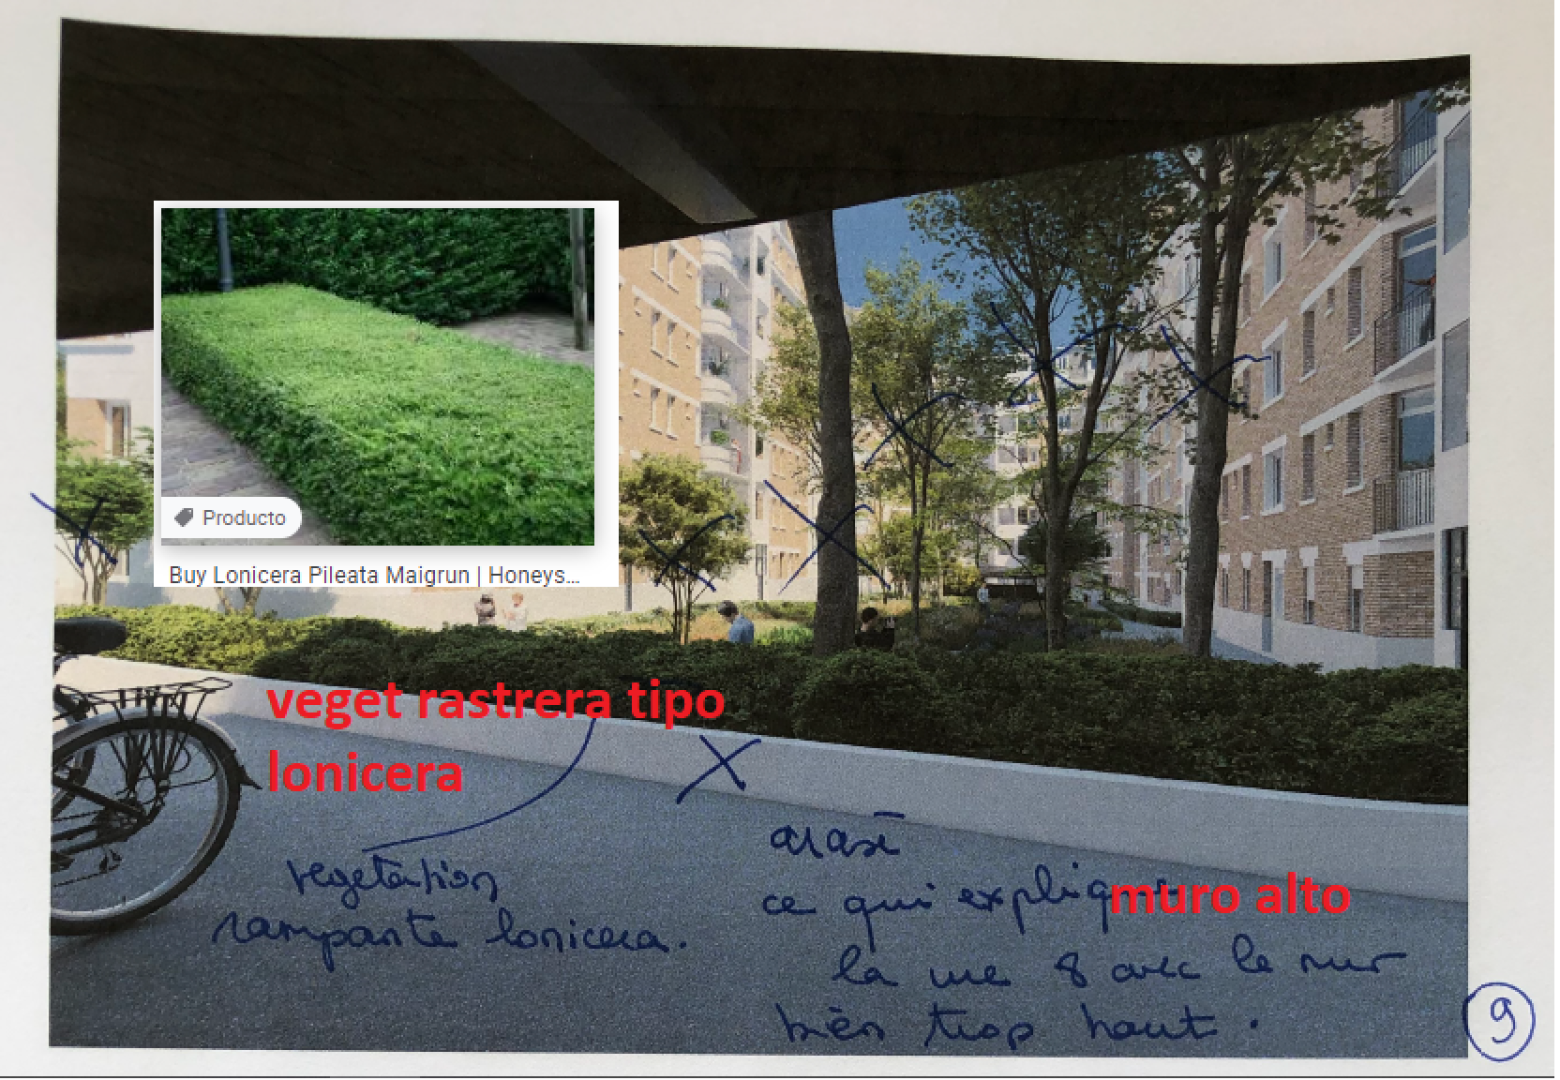 Producto
Buy Lonicera Pileata Maigrun | Honeys...
veget rastrera tipo
lonicera
vegetation
rampante lonicera.
ce qui explique
muro alto
la vue 8 avec le mur
bien trop haut.
9